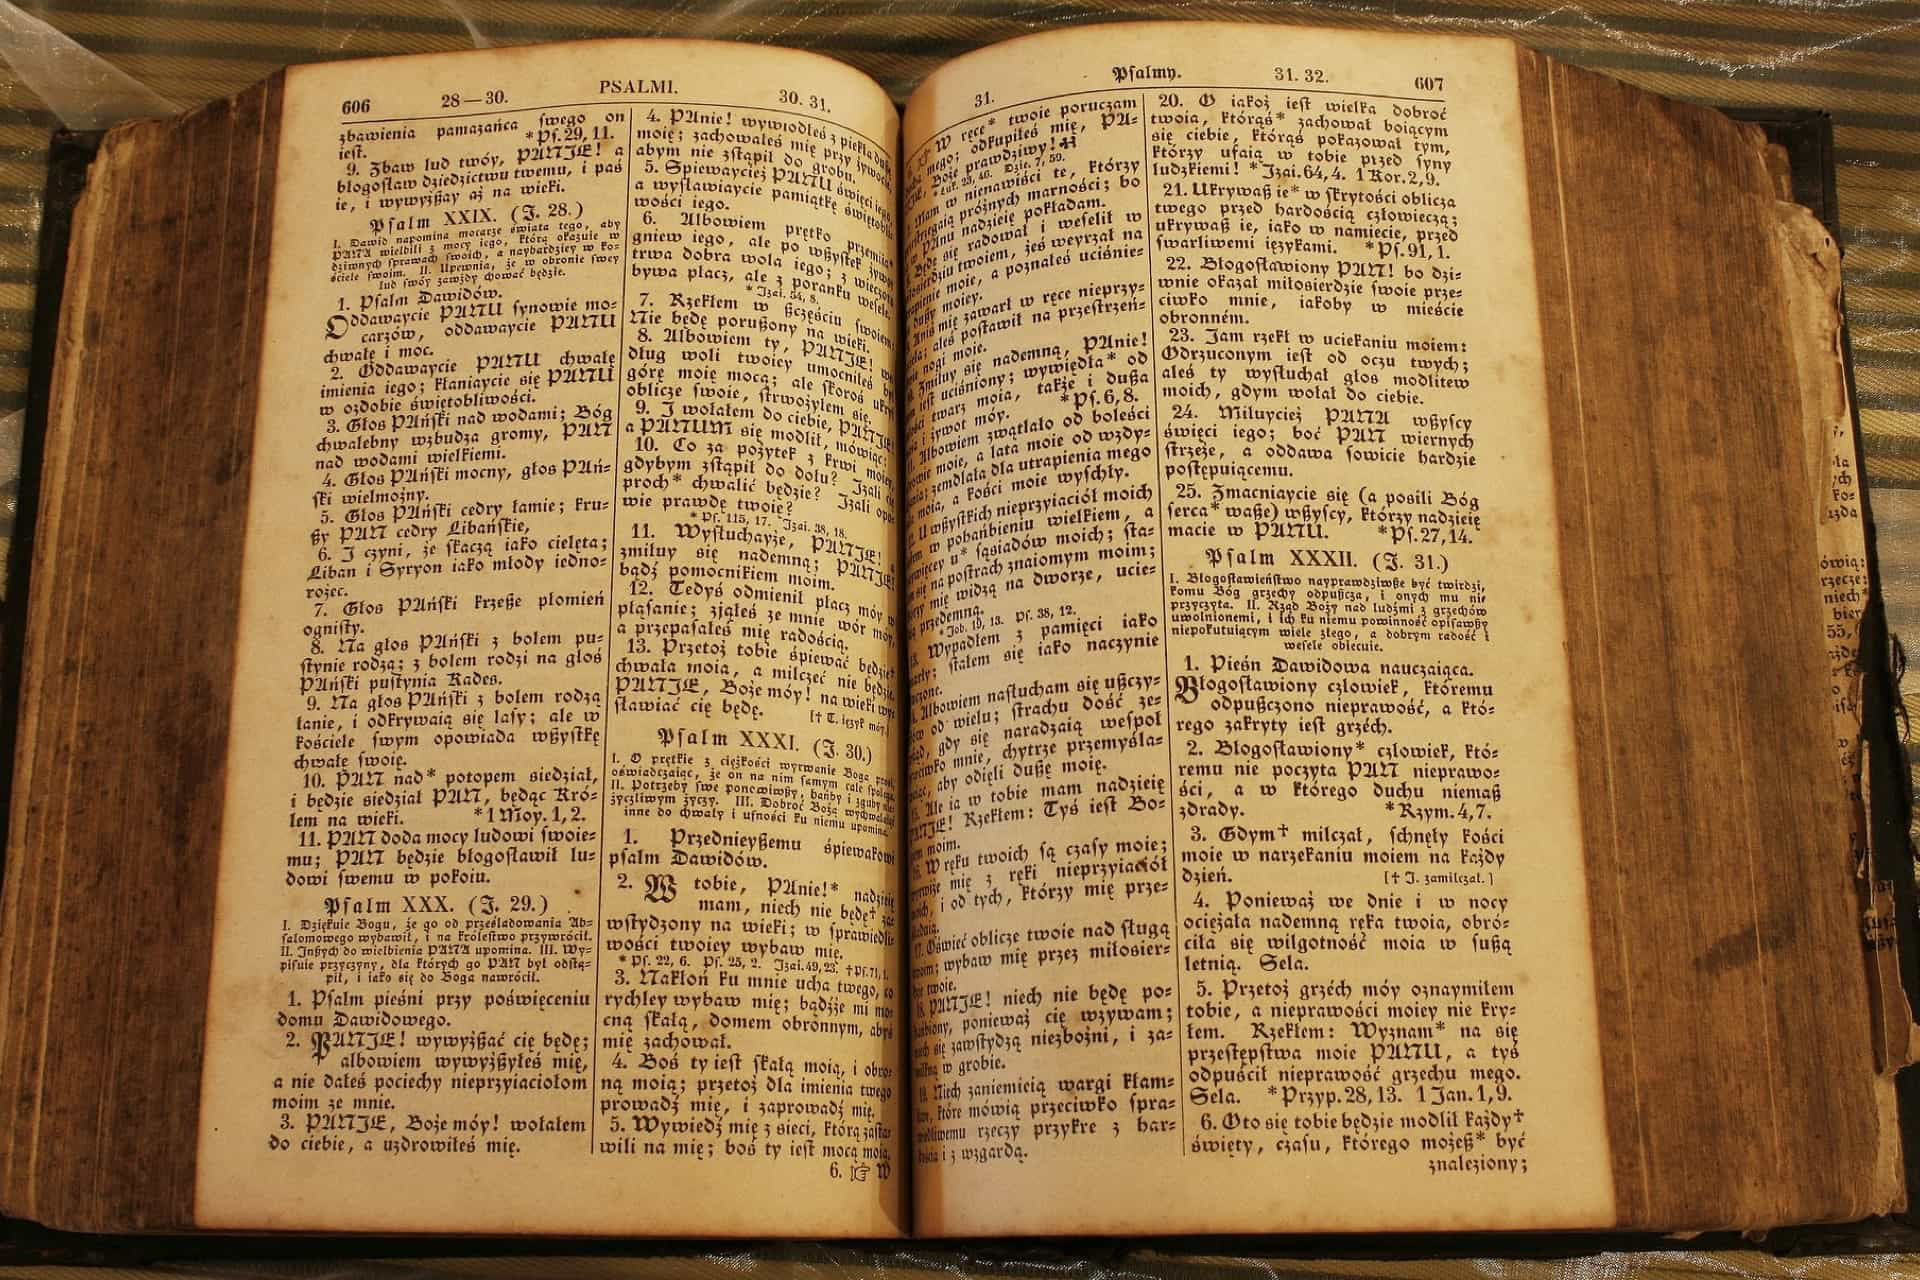 606 28—30. PSALMI. 30. 31.
zbawienia pamazańca swego on
iest. *Ps. 29, 11.
9. Zbaw lud twóy, PANIE! a
błogosław dziedzictwu twemu, i paś
ie, i wywyższay aż na wieki.
Psalm XXIX. (J. 28.)
I. Dawid napomina mocarze świata tego, aby
PANA wielbili z mocy iego, którą okazuie w
dziwnych sprawach swoich, a naybardziey w ko-
ściele swoim. II. Upewnia, że w obronie swey
lud swóy zawżdy chować będzie.
1. Psalm Dawidów.
Oddawaycie PANU synowie mo-
carzów, oddawaycie PANU
chwałę i moc.
2. Oddawaycie PANU chwałę
imienia iego; kłaniaycie się PANU
w ozdobie świętobliwości.
3. Głos PAński nad wodami; Bóg
chwalebny wzbudza gromy, PAN
nad wodami wielkiemi.
4. Głos PAński mocny, głos PAń-
ski wielmożny.
5. Głos PAński cedry łamie; kru-
szy PAN cedry Libańskie,
6. I czyni, że skaczą iako cielęta;
Liban i Syryon iako młody iedno-
rożec.
7. Głos PAński krzesze płomień
ognisty.
8. Na głos PAński z bolem pu-
stynie rodzą; z bolem rodzi na głos
PAński pustynia Kades.
9. Na głos PAński z bolem rodzą
łanie, i odkrywaią się lasy; ale w
kościele swym opowiada wszystkę
chwałę swoię.
10. PAN nad* potopem siedział,
i będzie siedział PAN, będąc Kró-
lem na wieki. *1 Moy. 1, 2.
11. PAN doda mocy ludowi swoie-
mu; PAN będzie błogosławił lu-
dowi swemu w pokoiu.
Psalm XXX. (J. 29.)
I. Dziękuie Bogu, że go od prześladowania Ab-
salomowego wybawił, i na królestwo przywrócił.
II. Inszych do wielbienia PANA upomina. III. Wy-
pisuie przyczyny, dla których go PAN był odstą-
pił, i iako się do Boga nawrócił.
1. Psalm pieśni przy poświęceniu
domu Dawidowego.
2. PANIE! wywyższać cię będę;
albowiem wywyższyłeś mię,
a nie dałeś pociechy nieprzyiaciołom
moim ze mnie.
3. PANIE, Boże móy! wołałem
do ciebie, a uzdrowiłeś mię.
4. PAnie! wywiodłeś z piekła duszę
moię; zachowałeś mię przy żywocie,
abym nie zstąpił do grobu.
5. Śpiewaycież PANU święci iego,
a wysławiaycie pamiątkę świętobli-
wości iego.
6. Albowiem prętko przemija*
gniew iego, ale po wszystek żywot
trwa dobra wola iego; z wieczora
bywa płacz, ale z poranku wesele.
* Izai. 54, 8.
7. Rzekłem w szczęściu swoiem:
Nie będę poruszony na wieki.
8. Albowiem ty, PANIE!
dług woli twoiey umocniłeś
górę moię mocą; ale skoroś ukrył
oblicze swoie, strwożyłem się.
9. I wołałem do ciebie, PANIE!
a PANUM się modlił, mówiąc:
10. Co za pożytek z krwi moiey,
gdybym zstąpił do dołu? Izali cię
proch* chwalić będzie? Izali opo-
wie prawdę twoię?
* Ps. 115, 17. Izai. 38, 18.
11. Wysłuchayże, PANIE!
zmiłuy się nademną; PANIE!
bądź pomocnikiem moim.
12. Tedyś odmienił płacz móy w
pląsanie; zjąłeś ze mnie wór móy,
a przepasałeś mię radością.
13. Przetoż tobie śpiewać będzie†
chwała moia, a milczeć nie będzie.
PANIE, Boże móy! na wieki wy-
sławiać cię będę. [† T. ięzyk móy.]
Psalm XXXI. (J. 30.)
I. O prętkie z ciężkości wyrwanie Boga prosi,
oświadczaiąc, że on na nim samym całe polega.
II. Potrzeby swe ponowiwszy, hańby i zguby
życzliwym życzy. III. Dobroć Bożą wychwalaiąc
inne do chwały i ufności ku niemu upomina.
1. Przednieyszemu śpiewakowi
psalm Dawidów.
2. W tobie, PAnie!* nadzieię
mam, niech nie będę† za-
wstydzony na wieki; w sprawiedli-
wości twoiey wybaw mię.
* Ps. 22, 6. Ps. 25, 2. Izai. 49, 23. †Ps. 71, 1.
3. Nakłoń ku mnie ucha twego, co
rychley wybaw mię; bądźże mi mo-
cną skałą, domem obronnym, abyś
mię zachował.
4. Boś ty iest skałą moią, i obro-
ną moią; przetoż dla imienia twego
prowadź mię, i zaprowadź mię.
5. Wywiedź mię z sieci, którą zasta-
wili na mię; boś ty iest mocą moią.
6. ☞ W
31. Psalmy. 31. 32. 607
W ręce* twoie poruczam
mego; odkupiłeś mię, PA-
Boże prawdziwy!
* Łuk. 23, 46. Dzie. 7, 59.
Mam w nienawiści te, którzy
przestrzegaią próżnych marności; bo
PAnu nadzieię pokładam.
Będę się radował i weselił w
miłosierdziu twoiem, żeś weyrzał na
utrapienie moie, a poznałeś uciśnie-
duszy moiey.
Aniś mię zawarł w ręce nieprzy-
aleś postawił na przestrzeń-
nogi moie.
Zmiłuy się nademną, PAnie!
iest uciśniony; wywiędła* od
twarz moia, także i dusza
i żywot móy. *Ps. 6, 8.
11. Albowiem zwątlało od boleści
moie, a lata moie od wzdy-
zemdlała dla utrapienia mego
moia, a kości moie wyschły.
12. U wszystkich nieprzyiaciół moich
w pohańbieniu wielkiem, a
u* sąsiadów moich; sta-
się na postrach znaiomym moim;
mię widzą na dworze, ucie-
przedemną.
* Job. 19, 13. Ps. 38, 12.
13. Wypadłem z pamięci iako
stałem się iako naczynie
14. Albowiem nasłucham się uszczy-
od wielu; strachu dość ze-
gdy się naradzaią wespół
przeciwko mnie, chytrze przemyśla-
aby odięli duszę moię.
15. Ale ia w tobie mam nadzieię
PANIE! Rzekłem: Tyś iest Bo-
moim.
16. W ręku twoich są czasy moie;
mię z ręki nieprzyiaciół
moich, i od tych, którzy mię prze-
17. Oświeć oblicze twoie nad sługą
twoim; wybaw mię przez miłosier-
twoie.
18. PANIE! niech nie będę po-
hańbiony, ponieważ cię wzywam;
niech się zawstydzą niezbożni, i za-
milkną w grobie.
19. Niech zaniemieią wargi kłam-
które mówią przeciwko spra-
wiedliwemu rzeczy przykre z har-
i z wzgardą.
20. O iakoż iest wielka dobroć
twoia, którąś* zachował boiącym
się ciebie, którąś pokazował tym,
którzy ufaią w tobie przed syny
ludzkiemi! *Izai. 64, 4. 1 Kor. 2, 9.
21. Ukrywasz ie* w skrytości oblicza
twego przed hardością człowieczą;
ukrywasz ie, iako w namiecie, przed
swarliwemi ięzykami. *Ps. 91, 1.
22. Błogosławiony PAN! bo dzi-
wnie okazał miłosierdzie swoie prze-
ciwko mnie, iakoby w mieście
obronném.
23. Jam rzekł w uciekaniu moiem:
Odrzuconym iest od oczu twych;
aleś ty wysłuchał głos modlitew
moich, gdym wołał do ciebie.
24. Miłuycież PANA wszyscy
święci iego; boć PAN wiernych
strzeże, a oddawa sowicie hardzie
postępuiącemu.
25. Zmacniaycie się (a posili Bóg
serca* wasze) wszyscy, którzy nadzieię
macie w PANU. *Ps. 27, 14.
Psalm XXXII. (J. 31.)
I. Błogosławieństwo nayprawdziwsze być twirdzi,
komu Bóg grzechy odpuszcza, i onych mu nie
przyczyta. II. Rząd Boży nad ludźmi z grzechów
uwolnionemi, i ich ku niemu powinność opisawszy
niepokutuiącym wiele złego, a dobrym radość i
wesele obiecuie.
1. Pieśń Dawidowa nauczaiąca.
Błogosławiony człowiek, któremu
odpuszczono nieprawość, a któ-
rego zakryty iest grzéch.
2. Błogosławiony* człowiek, któ-
remu nie poczyta PAN nieprawo-
ści, a w którego duchu niemasz
zdrady. *Rzym. 4, 7.
3. Gdym† milczał, schnęły kości
moie w narzekaniu moiem na każdy
dzień. [† J. zamilczał.]
4. Ponieważ we dnie i w nocy
ociężała nademną ręka twoia, obró-
ciła się wilgotność moia w suszą
letnią. Sela.
5. Przetoż grzéch móy oznaymiłem
tobie, a nieprawości moiey nie kry-
łem. Rzekłem: Wyznam* na się
przestępstwa moie PANU, a tyś
odpuścił nieprawość grzechu mego.
Sela. *Przyp. 28, 13. 1 Jan. 1, 9.
6. Oto się tobie będzie modlił każdy†
święty, czasu, którego możesz* być
znaleziony;